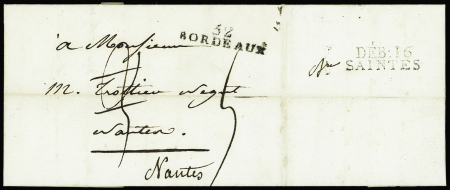 à Monsieur
32
BORDEAUX
DÉB. 16
SAINTES
M. Trottier Negt
Nantes.
Nantes